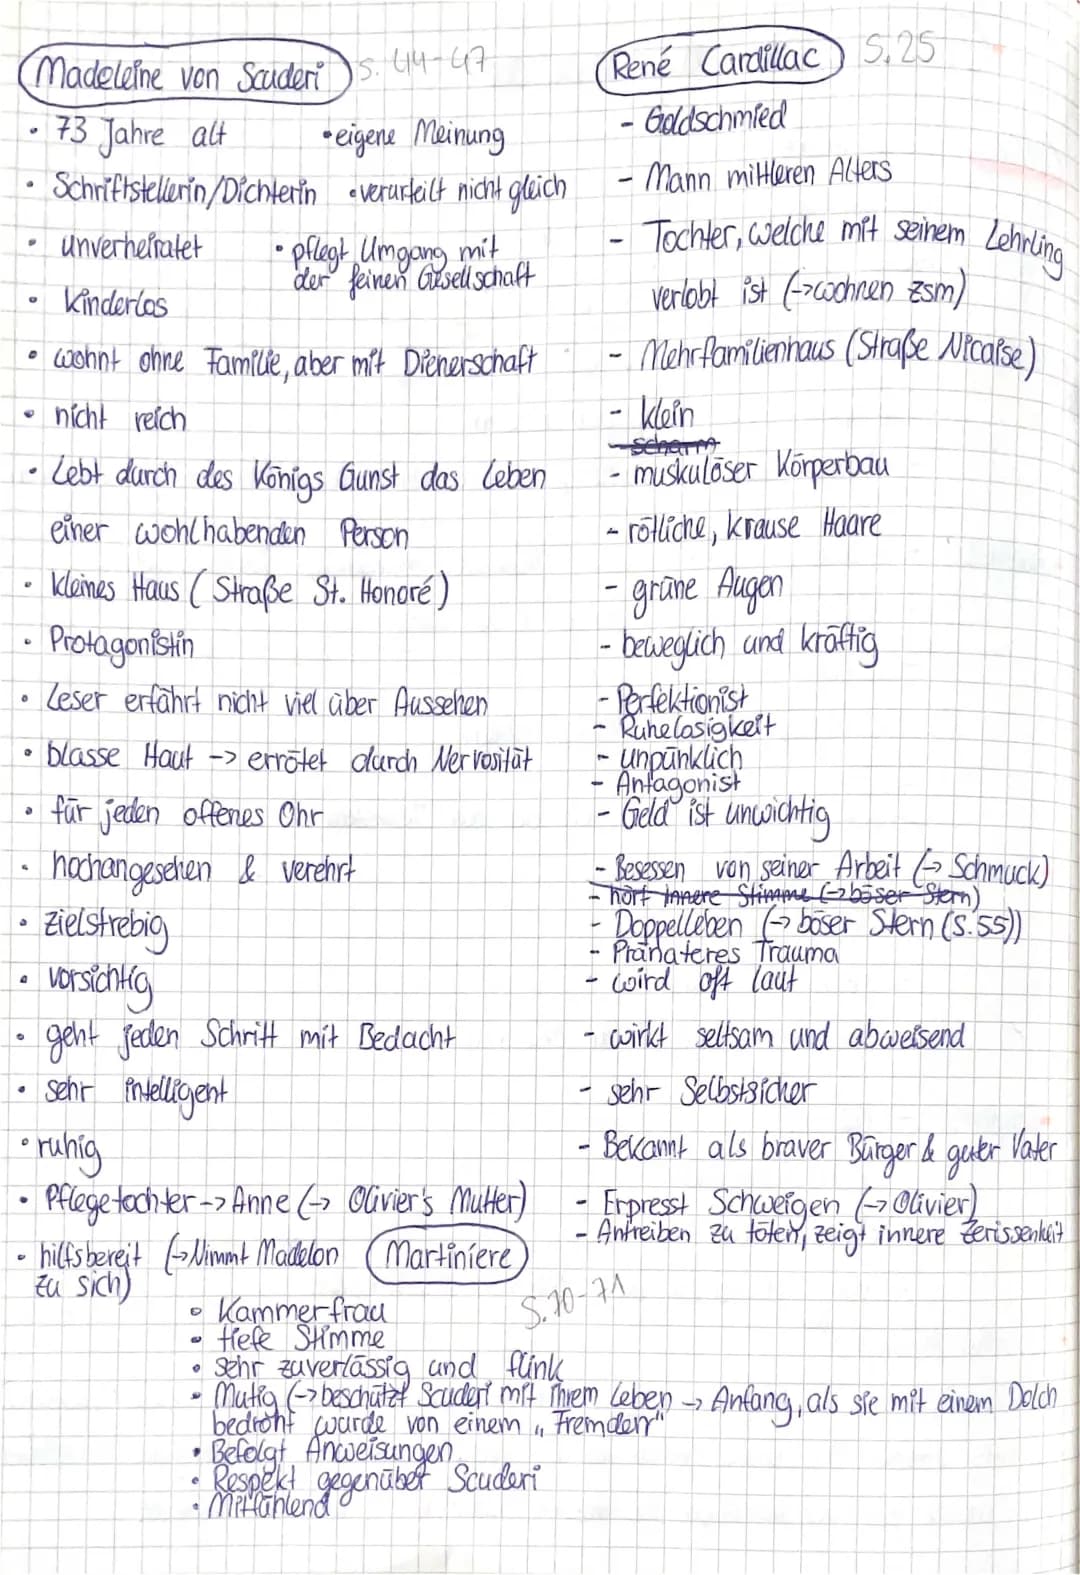 Madeleine von Scuderi S. 44-47
• 73 Jahre alt •eigene Meinung
• Schriftstellerin/Dichterin •verurteilt nicht gleich
• unverheiratet • pflegt Umgang mit
der feinen Gesellschaft
• Kinderlos
• wohnt ohne Familie, aber mit Dienerschaft
• nicht reich
• Lebt durch des Königs Gunst das Leben
einer wohlhabenden Person
• kleines Haus (Straße St. Honoré)
• Protagonistin
• Leser erfährt nicht viel über Aussehen
• blasse Haut -> errötet durch Nervosität
• für jeden offenes Ohr
• hochangesehen & verehrt
• zielstrebig
• vorsichtig
• geht jeden Schritt mit Bedacht
• sehr intelligent
• ruhig
• Pflegetochter -> Anne (-> Olivier's Mutter)
• hilfsbereit (->Nimmt Madelon
zu sich)
René Cardillac S. 25
- Goldschmied
- Mann mittleren Alters
- Tochter, welche mit seinem Lehrling
verlobt ist (->wohnen zsm)
- Mehrfamilienhaus (Straße Nicaise)
- klein
- scharm
- muskulöser Körperbau
- rötliche, krause Haare
- grüne Augen
- beweglich und kräftig
- Perfektionist
- Ruhelosigkeit
- unpünklich
- Antagonist
- Geld ist unwichtig
- Besessen von seiner Arbeit (-> Schmuck)
- hört innere Stimme (->böser Stern)
- Doppelleben (-> böser Stern (S. 55))
- Pränateres Trauma
- wird oft laut
- wirkt seltsam und abweisend
- sehr Selbstsicher
- Bekannt als braver Bürger & guter Vater
- Erpresst Schweigen (-> Olivier)
- Antreiben zu töten, zeigt innere Zerissenheit
Martiniere S. 70-71
• Kammerfrau
• tiefe Stimme
• sehr zuverlässig und flink
• Mutig (->beschützt Scuderi mit ihrem Leben -> Anfang, als sie mit einem Dolch
bedroht wurde von einem „Fremden"
• Befolgt Anweisungen
• Respekt gegenüber Scuderi
• Mitfühlend